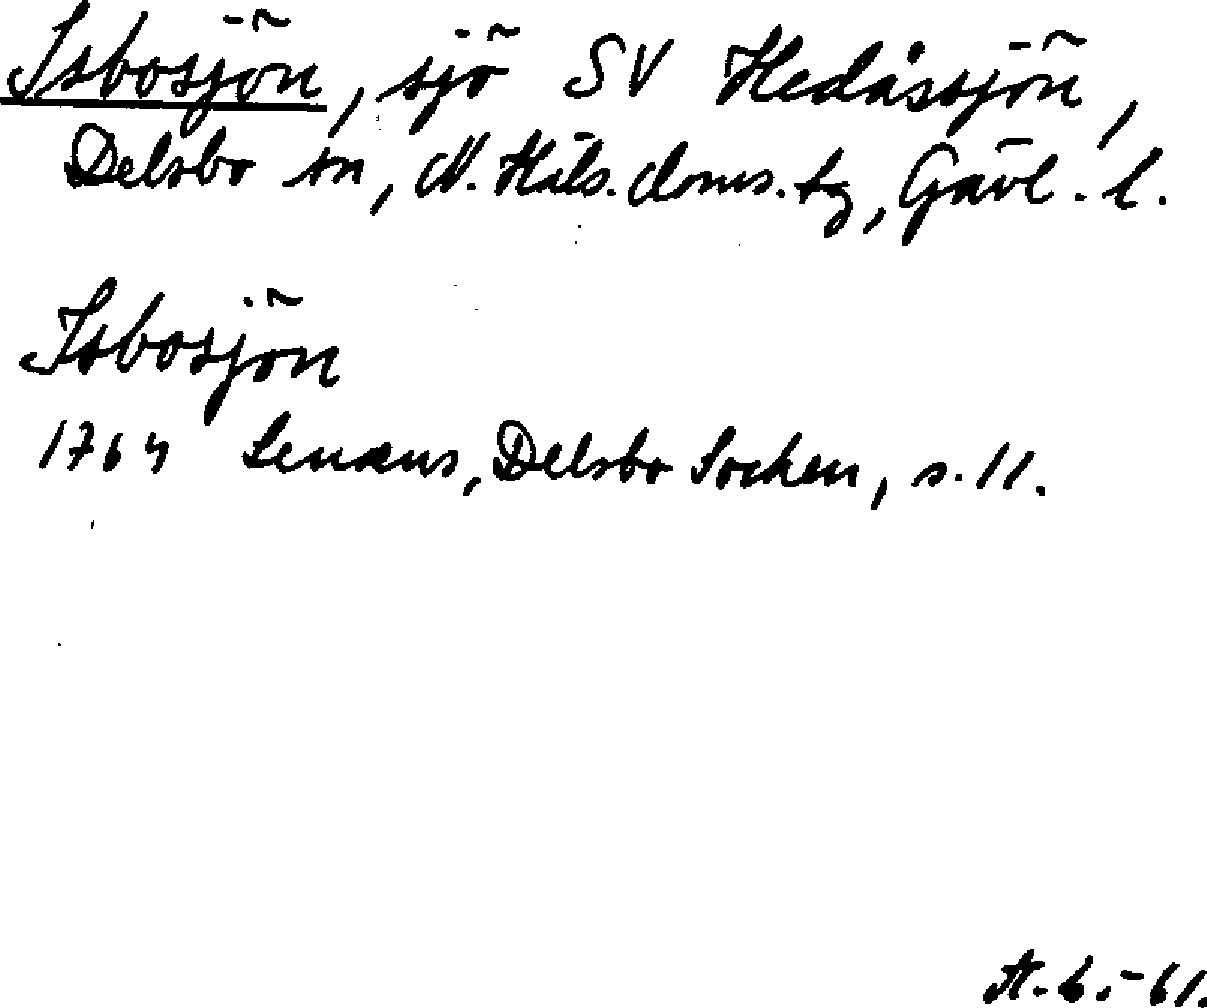 Isbosjön, sjö SV Hedåssjön,
Delsbo sn, N. Häls. doms. tg, Gävl. l.
Isbosjön
1764 Lenæus, Delsbo Socken, s. 11.
-61.